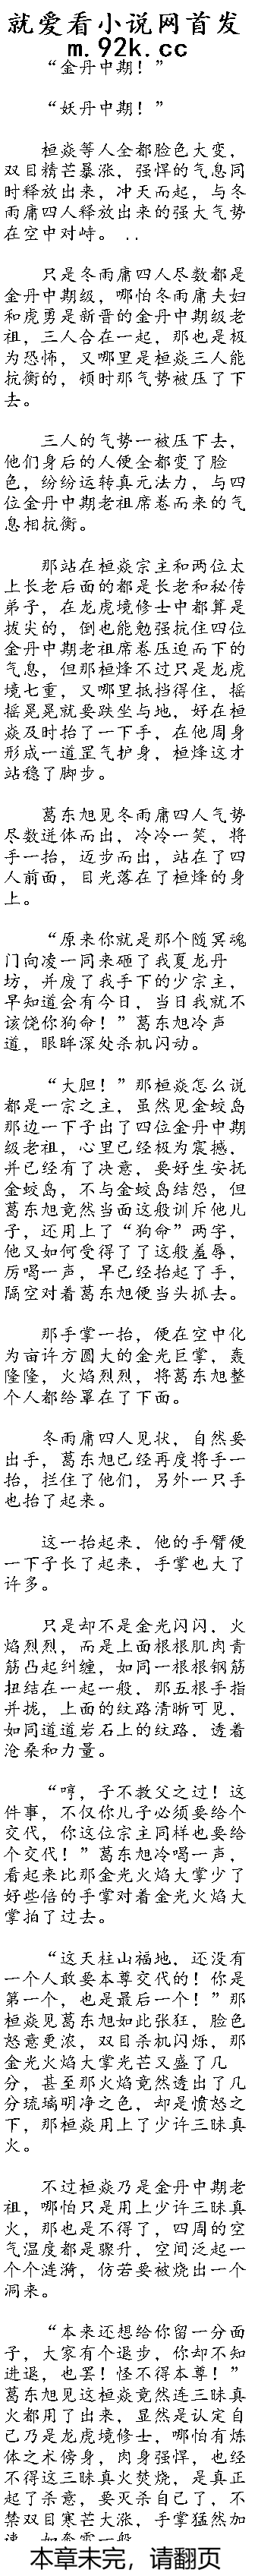 就爱看小说网首发
m.92k.cc
“金丹中期！”
“妖丹中期！”
桓焱等人全都脸色大变，
双目精芒暴涨，强悍的气息同
时释放出来，冲天而起，与冬
雨庸四人释放出来的强大气势
在空中对峙。 ..
只是冬雨庸四人尽数都是
金丹中期级，哪怕冬雨庸夫妇
和虎勇是新晋的金丹中期级老
祖，三人合在一起，那也是极
为恐怖，又哪里是桓焱三人能
抗衡的，顿时那气势被压了下
去。
三人的气势一被压下去，
他们身后的人便全都变了脸
色，纷纷运转真元法力，与四
位金丹中期老祖席卷而来的气
息相抗衡。
那站在桓焱宗主和两位太
上长老后面的都是长老和秘传
弟子，在龙虎境修士中都算是
拔尖的，倒也能勉强抗住四位
金丹中期老祖席卷压迫而下的
气息，但那桓烽不过只是龙虎
境七重，又哪里抵挡得住，摇
摇晃晃就要跌坐与地，好在桓
焱及时抬了一下手，在他周身
形成一道罡气护身，桓烽这才
站稳了脚步。
葛东旭见冬雨庸四人气势
尽数迸体而出，冷冷一笑，将
手一抬，迈步而出，站在了四
人前面，目光落在了桓烽的身
上。
“原来你就是那个随冥魂
门向凌一同来砸了我夏龙丹
坊，并废了我手下的少宗主，
早知道会有今日，当日我就不
该饶你狗命！”葛东旭冷声
道，眼眸深处杀机闪动。
“大胆！”那桓焱怎么说
都是一宗之主，虽然见金蛟岛
那边一下子出了四位金丹中期
级老祖，心里已经极为震撼，
并已经有了决意，要好生安抚
金蛟岛，不与金蛟岛结怨，但
葛东旭竟然当面这般训斥他儿
子，还用上了“狗命”两字，
他又如何受得了了这般羞辱，
厉喝一声，早已经抬起了手，
隔空对着葛东旭便当头抓去。
那手掌一抬，便在空中化
为亩许方圆大的金光巨掌，轰
隆隆，火焰烈烈，将葛东旭整
个人都给罩在了下面。
冬雨庸四人见状，自然要
出手，葛东旭已经再度将手一
抬，拦住了他们，另外一只手
也抬了起来。
这一抬起来，他的手臂便
一下子长了起来，手掌也大了
许多。
只是却不是金光闪闪，火
焰烈烈，而是上面根根肌肉青
筋凸起纠缠，如同一根根钢筋
扭结在一起一般，那五根手指
并拢，上面的纹路清晰可见，
如同道道岩石上的纹路，透着
沧桑和力量。
“哼，子不教父之过！这
件事，不仅你儿子必须要给个
交代，你这位宗主同样也要给
个交代！”葛东旭冷喝一声，
看起来比那金光火焰大掌少了
好些倍的手掌对着金光火焰大
掌拍了过去。
“这天柱山福地，还没有
一个人敢要本尊交代的！你是
第一个，也是最后一个！”那
桓焱见葛东旭如此张狂，脸色
怒意更浓，双目杀机闪烁，那
金光火焰大掌光芒又盛了几
分，甚至那火焰竟然透出了几
分琉璃明净之色，却是愤怒之
下，那桓焱用上了少许三昧真
火。
不过桓焱乃是金丹中期老
祖，哪怕只是用上少许三昧真
火，那也是不得了，四周的空
气温度都是骤升，空间泛起一
个个涟漪，仿若要被烧出一个
洞来。
“本来还想给你留一分面
子，大家有个退步，你却不知
进退，也罢！怪不得本尊！”
葛东旭见这桓焱竟然连三昧真
火都用了出来，显然是认定自
己乃是龙虎境修士，哪怕有炼
体之术傍身，肉身强悍，也经
不得这三昧真火焚烧，是真正
起了杀意，要灭杀自己了，不
禁双目寒芒大涨，手掌猛然加
速，如奔雷一般
本章未完，请翻页